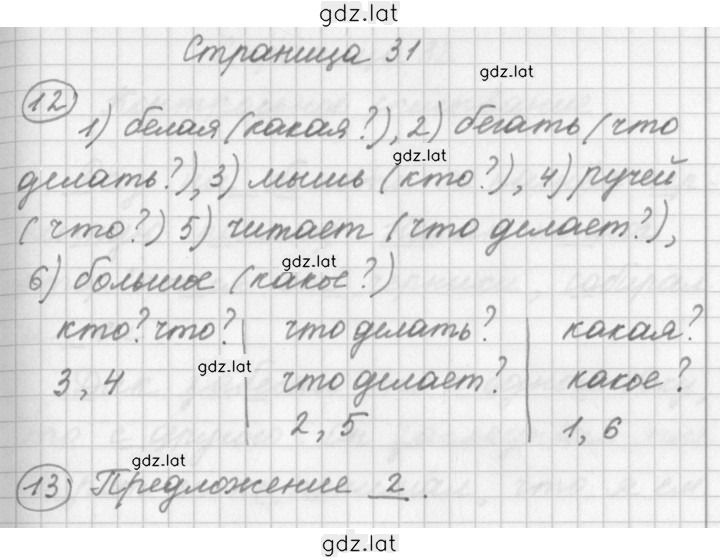 gdz.lat
Страница 31
gdz.lat
12
1) белая (какая?), 2) бегать (что
gdz.lat
делать?), 3) мышь (кто?), 4) ручей
(что?) 5) читает (что делает?),
gdz.lat
6) большое (какое?)
кто? что? что делать? какая?
gdz.lat
3, 4 что делает? какое?
2, 5 1, 6
gdz.lat
13 Предложение 2.
gdz.lat